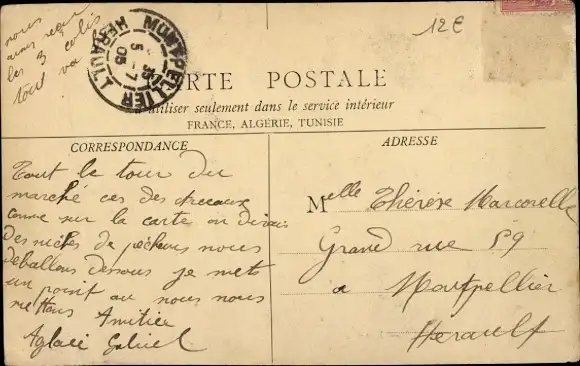 nous
avons reçu
les 3 colis
tout va
12 €
MONTPELLIER
5-7
05
HERAULT
CARTE POSTALE
à utiliser seulement dans le service intérieur
FRANCE, ALGÉRIE, TUNISIE
CORRESPONDANCE
Tout le tour du
marché ces des
comme sur la carte on dirais
des niches de pécheurs nous
deballons dessous je mets
un point au nous nous
mettons Amitiée
Aglaée Gabriel
ADRESSE
Melle Thérèse Marcorelle
Grand rue 59
a Montpellier
Herault